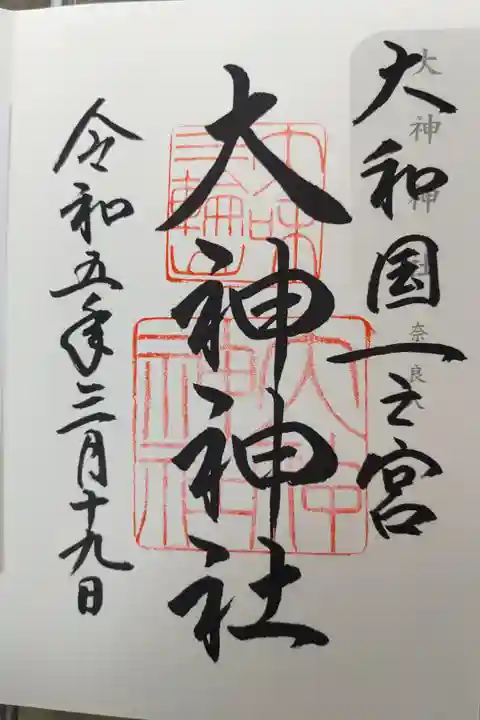 大和国一之宮
大神神社
奈良
大神神社
三輪山
大神
神社
令和五年三月十九日